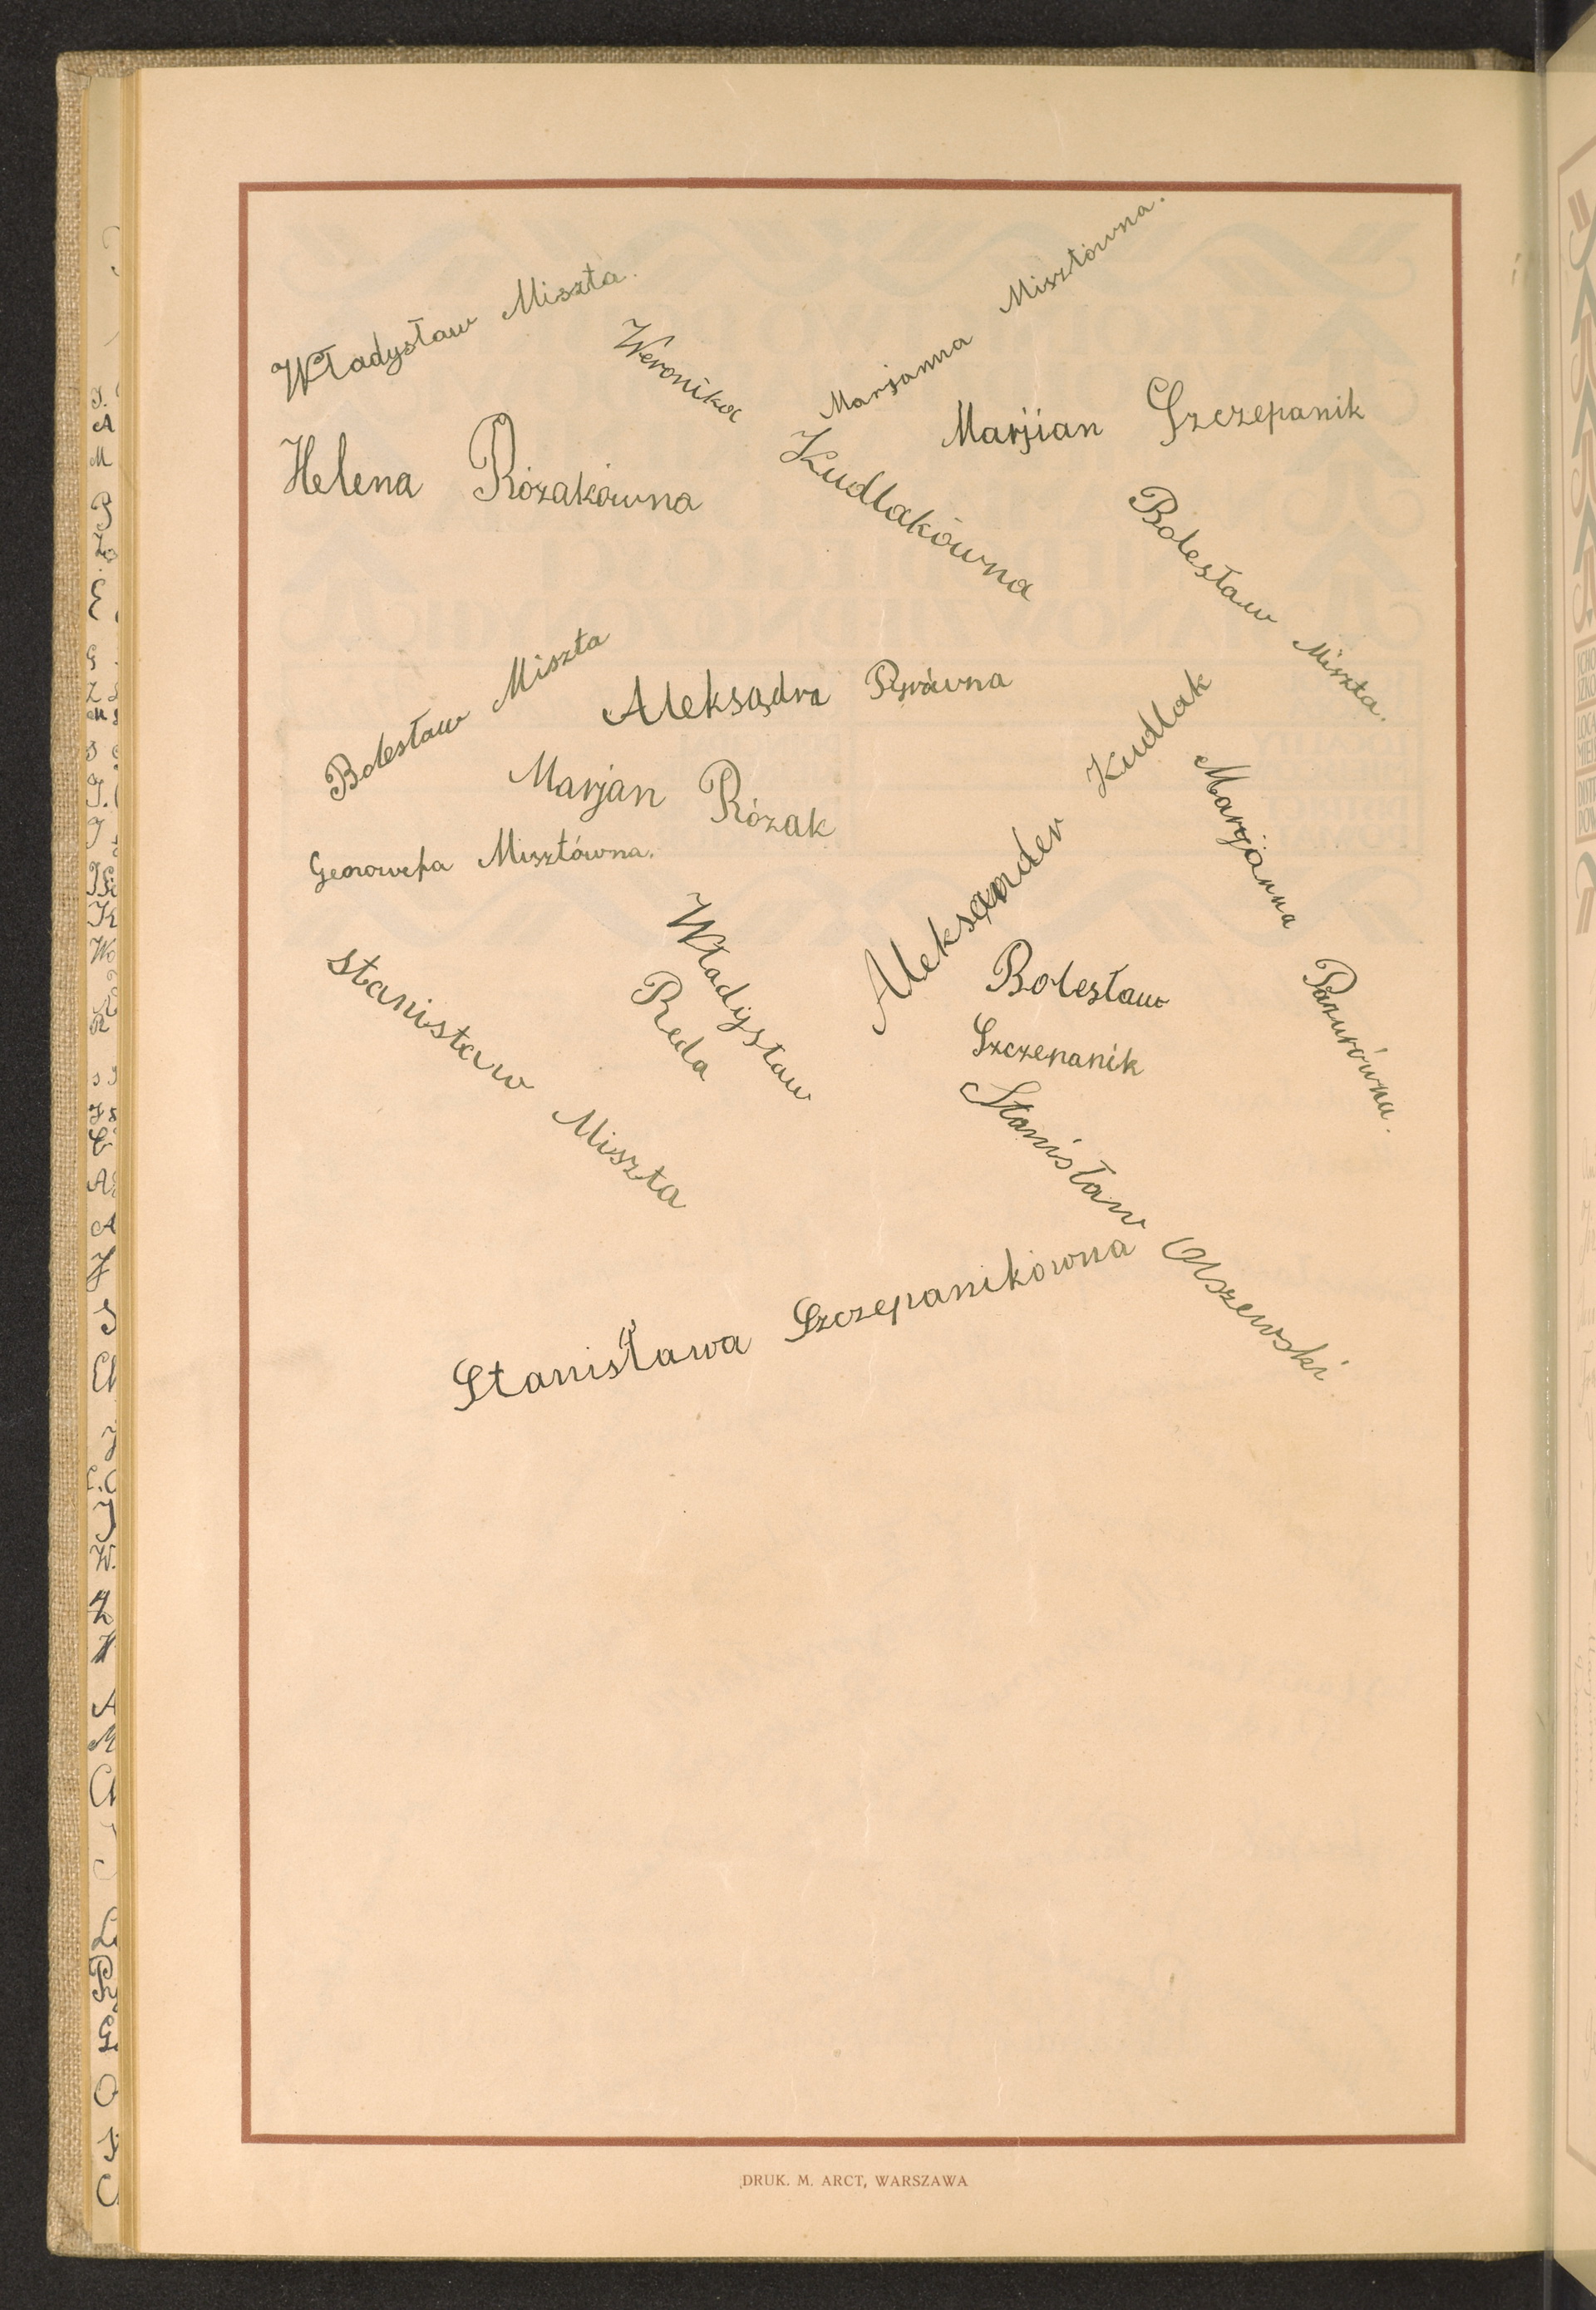 Władysław Miszta.
Marjanna Misztówna.
Weronika Kudlakówna
Marjian Szczepanik
Helena Rózakówna
Bolesław Miszta.
Bolesław Miszta
Aleksądra
Marjan Rózak
Aleksander Kudlak
Genowefa Misztówna.
Marjanna Pazurówna.
Władysław
Reda
Bolesław
Szczepanik
Stanisław Miszta
Stanisław Olszewski
Stanisława Szczepanikówna
DRUK. M. ARCT, WARSZAWA